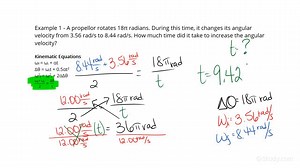 Example 1 - A propellor rotates 18π radians. During this time, it changes its angular
velocity from 3.56 rad/s to 8.44 rad/s. How much time did it take to increase the angular
velocity?
t?
Kinematic Equations
ωf = ωi + αt
Δθ = ωit + 0.5αt²
8.44 rad/s + 3.56 rad/s
2
18π rad
t
t = 9.42
12.00 rad/s
2
18π rad
t
ΔΘ = 18π rad
12.00 rad/s (t) = 36π rad
12.00 rad/s
12.00 rad/s
ωi = 3.56 rad/s
ωf = 8.44 rad/s